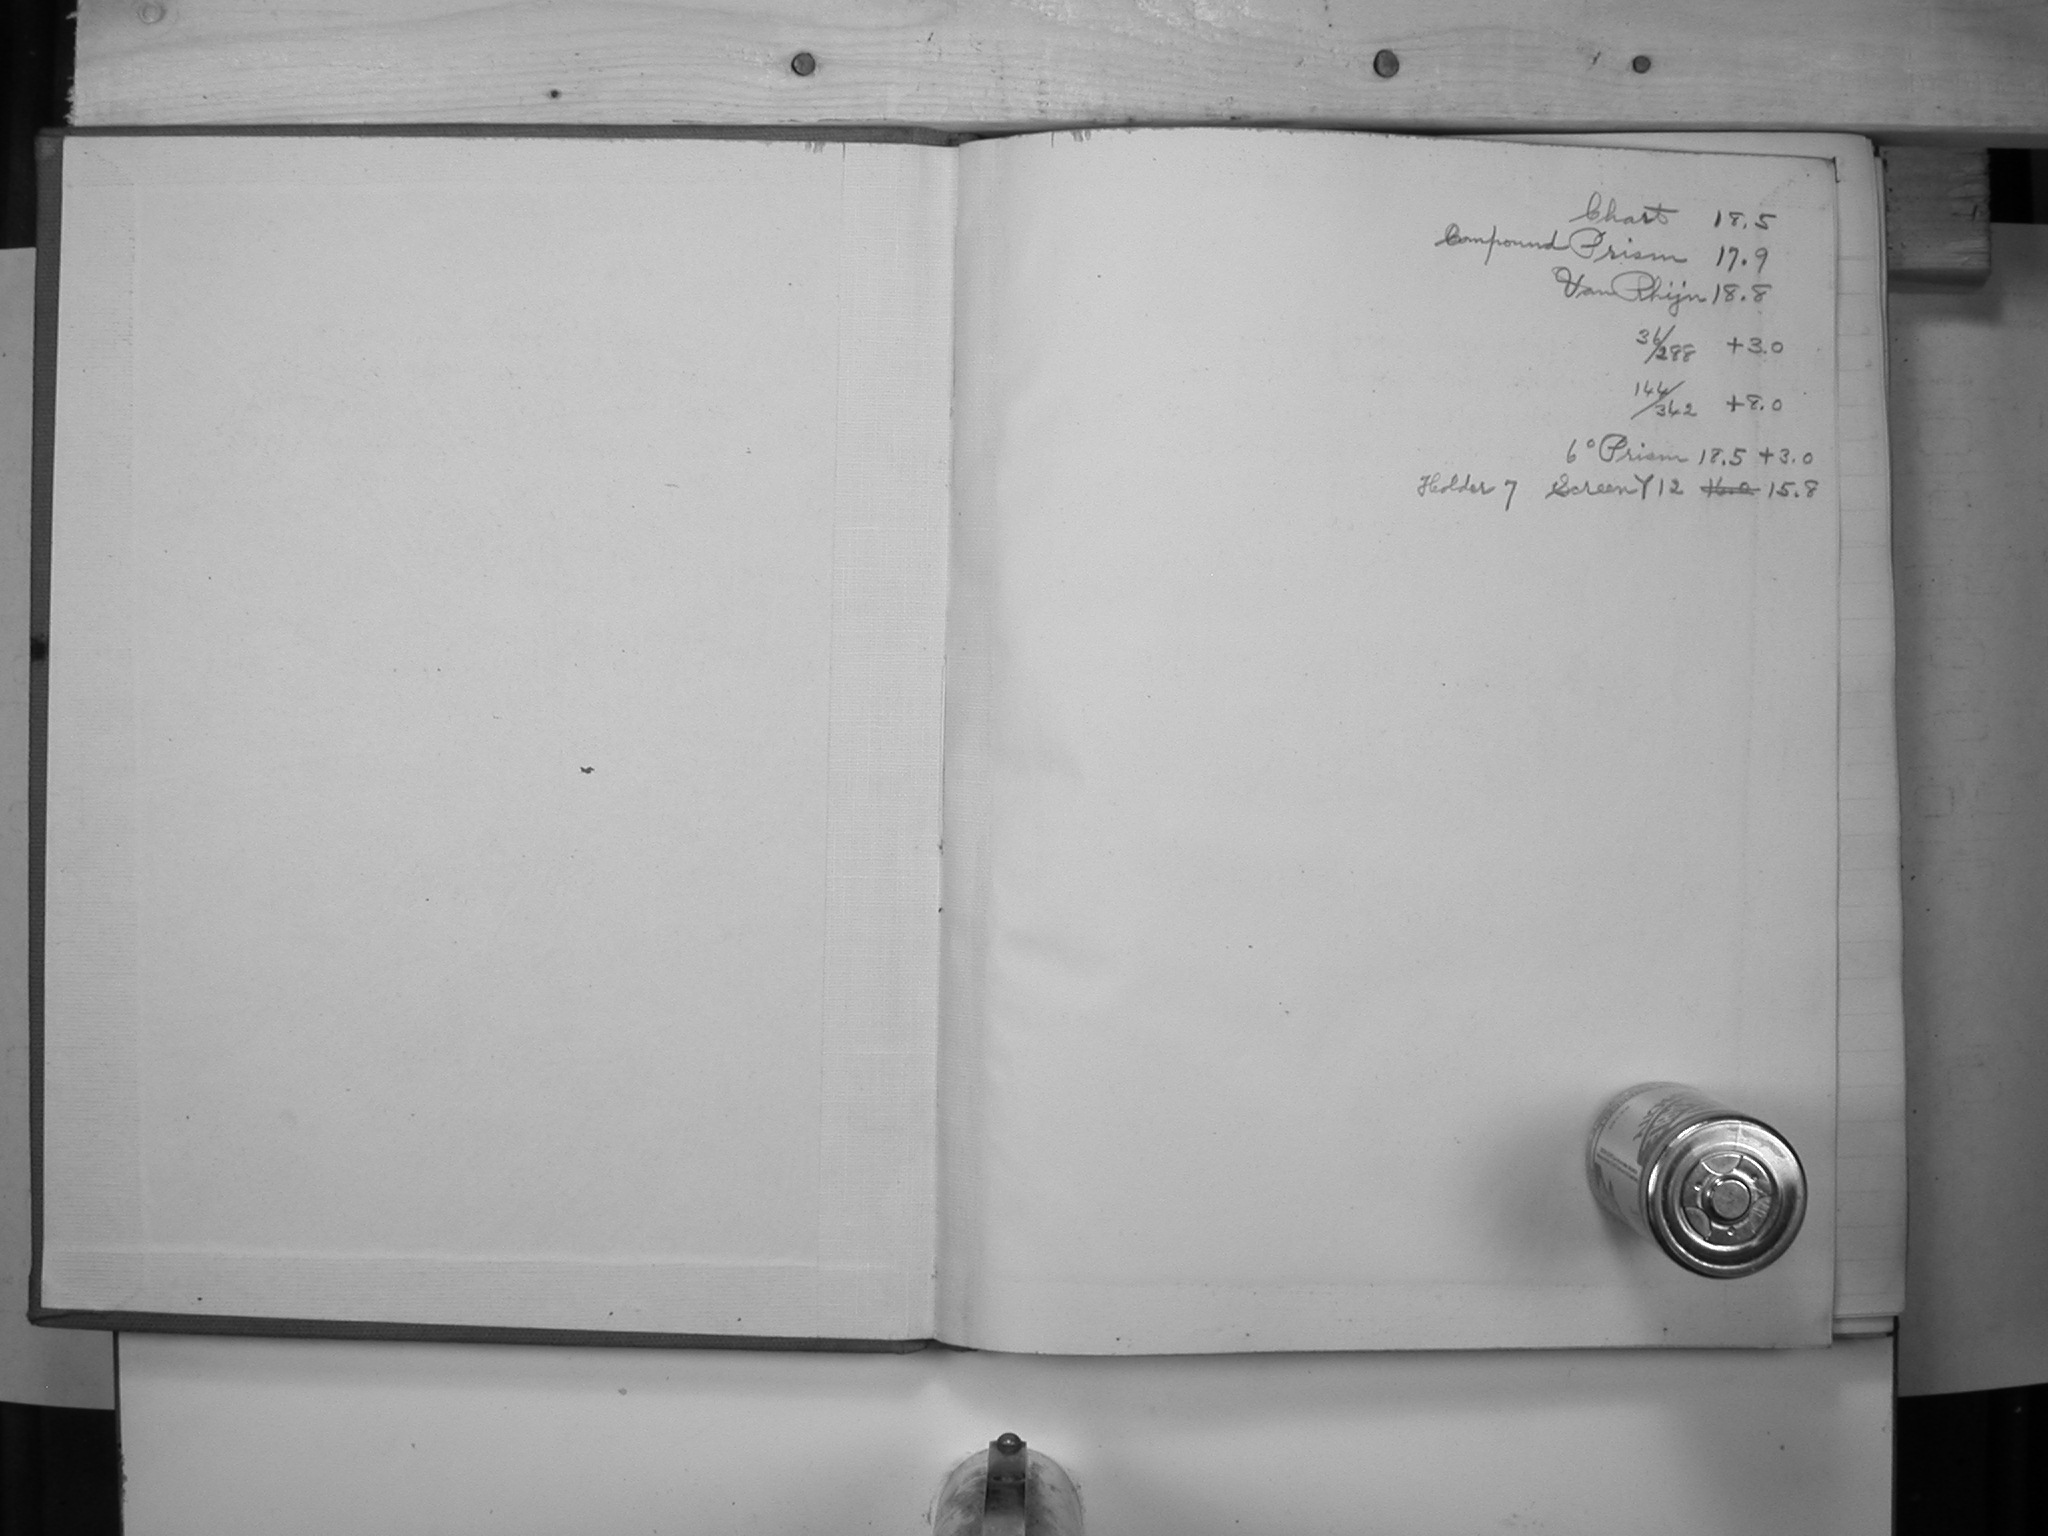 Chart 18.5
Compound Prism 17.9
Van Rhijn 18.8
36/288 +3.0
144/342 +8.0
6° Prism 18.5 +3.0
Holder 7 Screen Y12 16.0 15.8